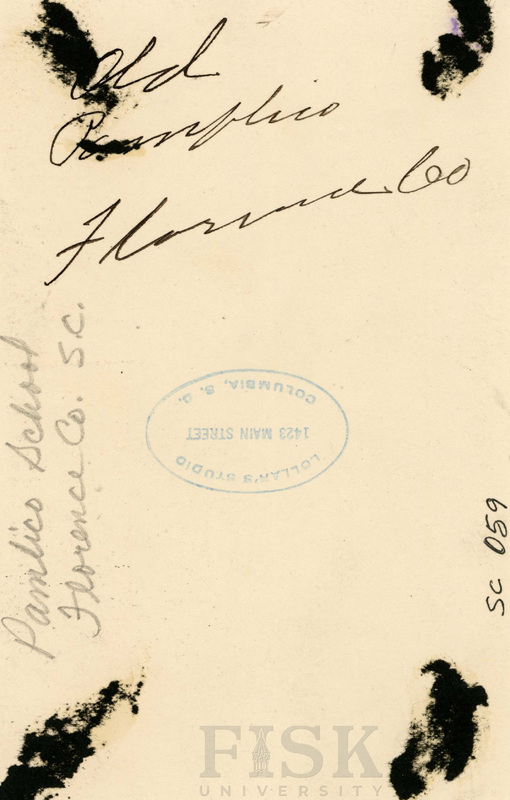 Old
Pamplico
Florence Co
Pamlico School
Florence Co. S.C.
LOLLAR'S STUDIO
1423 MAIN STREET
COLUMBIA, S. C.
SC 059
FISK
UNIVERSITY